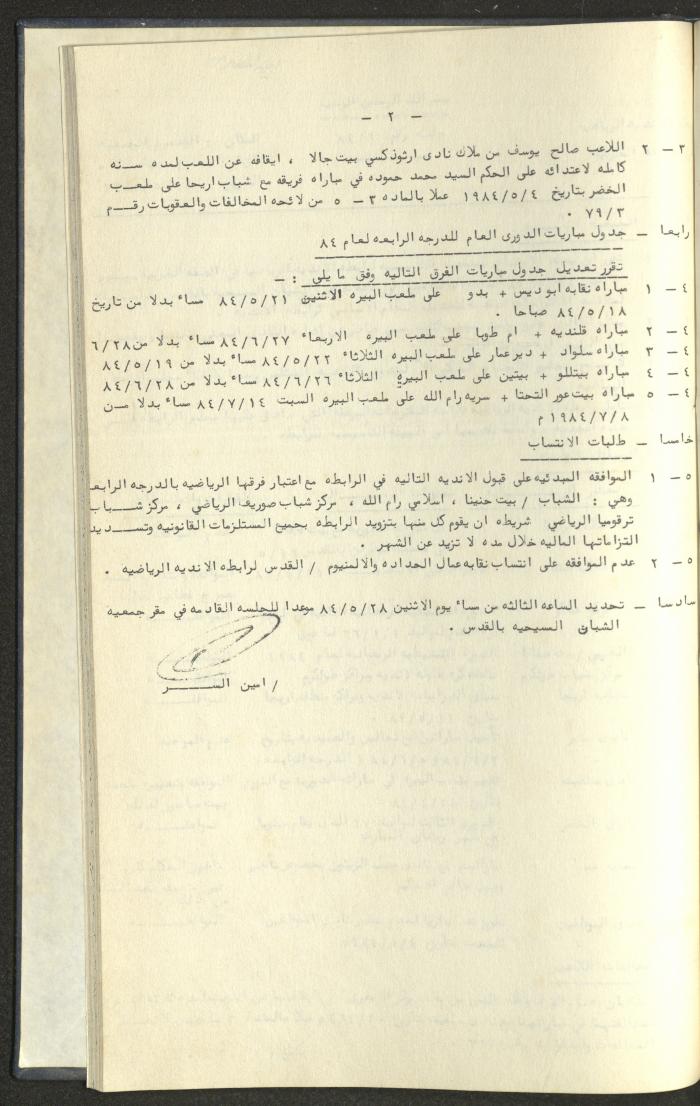 - ٢ -
٣ - ٢ اللاعب صالح يوسف من ملاك نادى ارثوذكسي بيت جالا ، ايقافه عن اللعب لمده سـنه
كامله لاعتدائه على الحكم السيد محمد حموده في مباراه فريقه مع شباب اريحا على ملعـب
الخضر بتاريخ ١٩٨٤/٥/٤ عملا بالماده ٣ - ٥ من لائحه المخالفات والعقوبات رقـم
٧٩/٣ .
رابعا - جدول مباريات الدورى العام للدرجه الرابعه لعام ٨٤
تقرر تعديل جدول مباريات الفرق التاليه وفق ما يلي : -
٤ - ١ مباراه نقابه ابوديس + بدو على ملعب البيره الاثنين ٨٤/٥/٢١ مساء بدلا من تاريخ
٨٤/٥/١٨ صباحا .
٤ - ٢ مباراه قلنديه + ام طوبا على ملعب البيره الاربعاء ٨٤/٦/٢٧ مساء بدلا من ٦/٢٨
٤ - ٣ مباراه سلواد + دير عمار على ملعب البيره الثلاثاء ٨٤/٥/٢٢ مساء بدلا من ٨٤/٥/١٩
٤ - ٤ مباراه بيتللو + بيتين على ملعب البيره الثلاثاء ٨٤/٦/٢٦ مساء بدلا من ٨٤/٦/٢٨
٤ - ٥ مباراه بيت عور التحتا + سريه رام الله على ملعب البيره السبت ٨٤/٧/١٤ مساء بدلا مـن
١٩٨٤/٧/٨ م
خامسا - طلبات الانتساب
٥ - ١ الموافقه المبدئيه على قبول الانديه التاليه في الرابطه مع اعتبار فرقها الرياضيه بالدرجه الرابعه
وهي : الشباب / بيت حنينا ، اسلامي رام الله ، مركز شباب صوريف الرياضي ، مركز شـباب
ترقوميا الرياضي شريطه ان يقوم كل منها بتزويد الرابطه بجميع المستلزمات القانونيه وتسـديد
التزاماتها الماليه خلال مده لا تزيد عن الشهر .
٥ - ٢ عدم الموافقه على انتساب نقابه عمال الحداده والالمنيوم / القدس لرابطه الانديه الرياضيه .
سادسا - تحديد الساعه الثالثه من مساء يوم الاثنين ٨٤/٥/٢٨ موعدا للجلسه القادمه في مقر جمعيه
الشبان المسيحيه بالقدس .
/ امين السـر